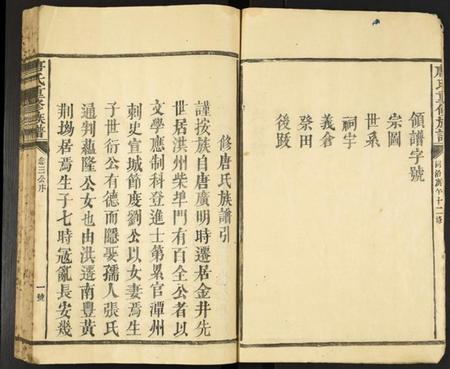 領譜字號
宗圖
世系
祠宇
義倉
祭田
後跋
修唐氏族譜引
謹按族自唐廣明時遷居金井先
世居洪州柴埠門有百全公者以
文學應制科登進士第累官潭州
刺史宣城節度劉公以女妻焉生
子世衍公有德而隱娶孺人張氏
通判蘊隆公女也由洪遷南豐黃
荆坳居焉生子七時寇亂長安幾
唐氏重修族譜
卷三公序
一號
唐氏重修族譜